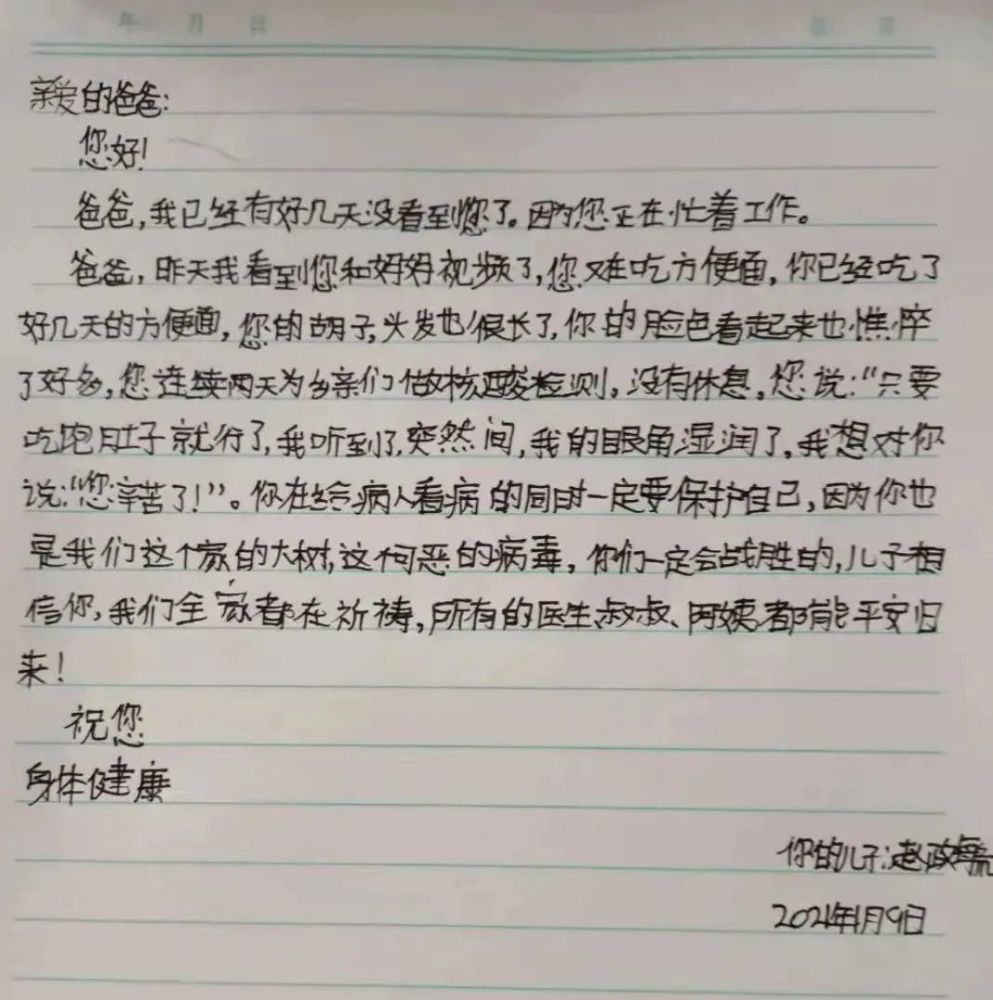 年 月 日
亲爱的爸爸:
您好!
爸爸,我已经有好几天没看到您了。因为您正在忙着工作。
爸爸,昨天我看到您和妈妈视频了,您又在吃方便面,你已经吃了
好几天的方便面,您的胡子,头发也很长了,你的脸色看起来也憔悴
了好多,您连续两天为乡亲们做核酸检测,没有休息,您说:“只要
吃跑肚子就行了,我听到了,突然间,我的眼角湿润了,我想对你
说:“您辛苦了!”。你在给病人看病的同时一定要保护自己,因为你也
是我们这个家的大树,这可恶的病毒,你们一定会战胜的,儿子相
信你,我们全家都在祈祷,所有的医生叔叔、阿姨都能平安归
来!
祝您
身体健康
你的儿子:赵政
2021年1月9日